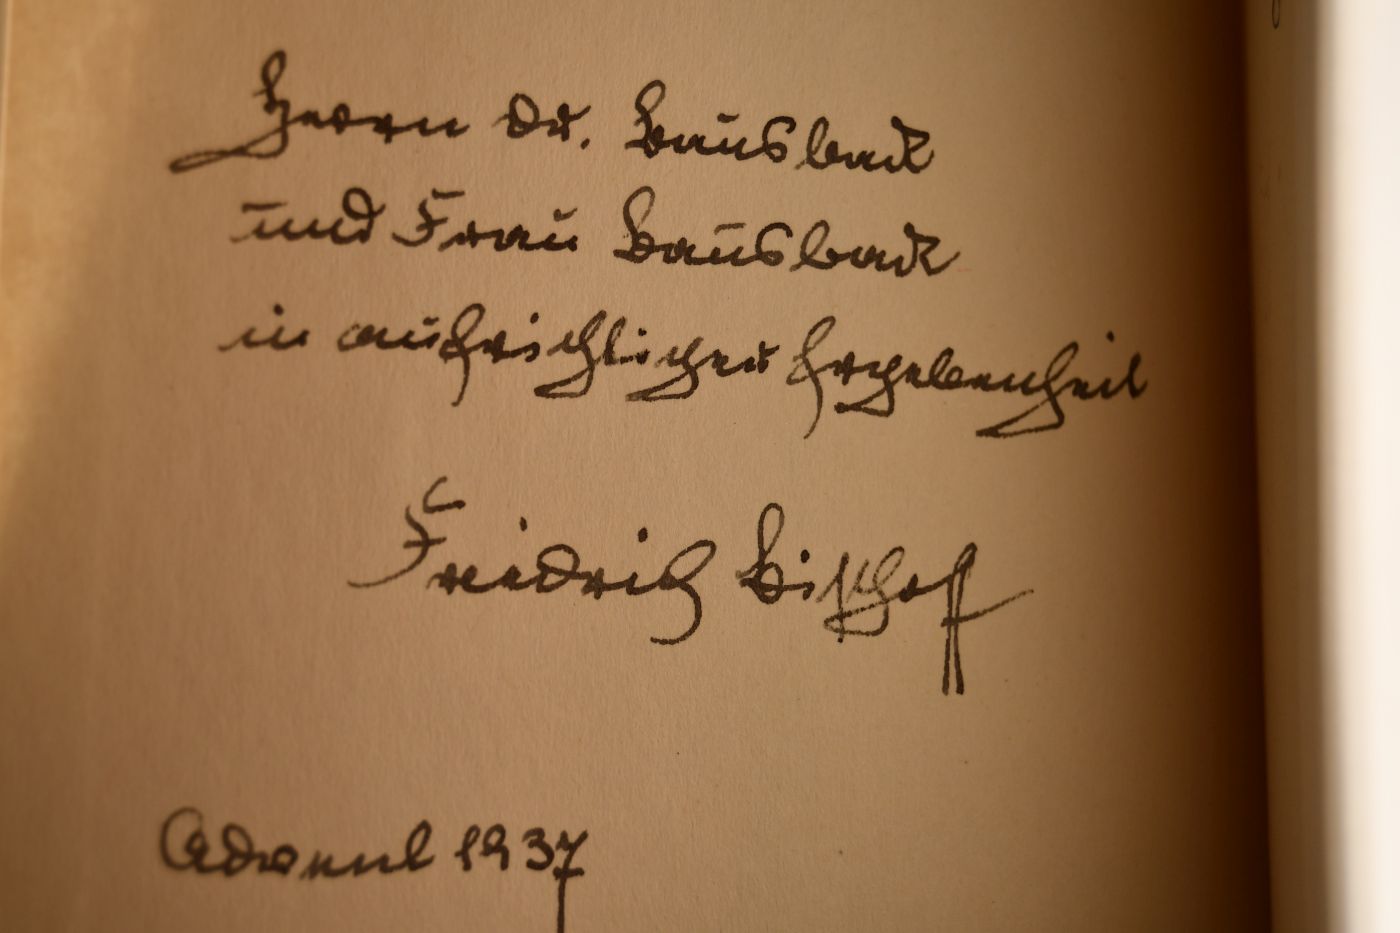 Herrn Dr. Bausback
und Frau Bausback
in aufrichtiger Ergebenheit
Friedrich Bischoff
Advent 1937